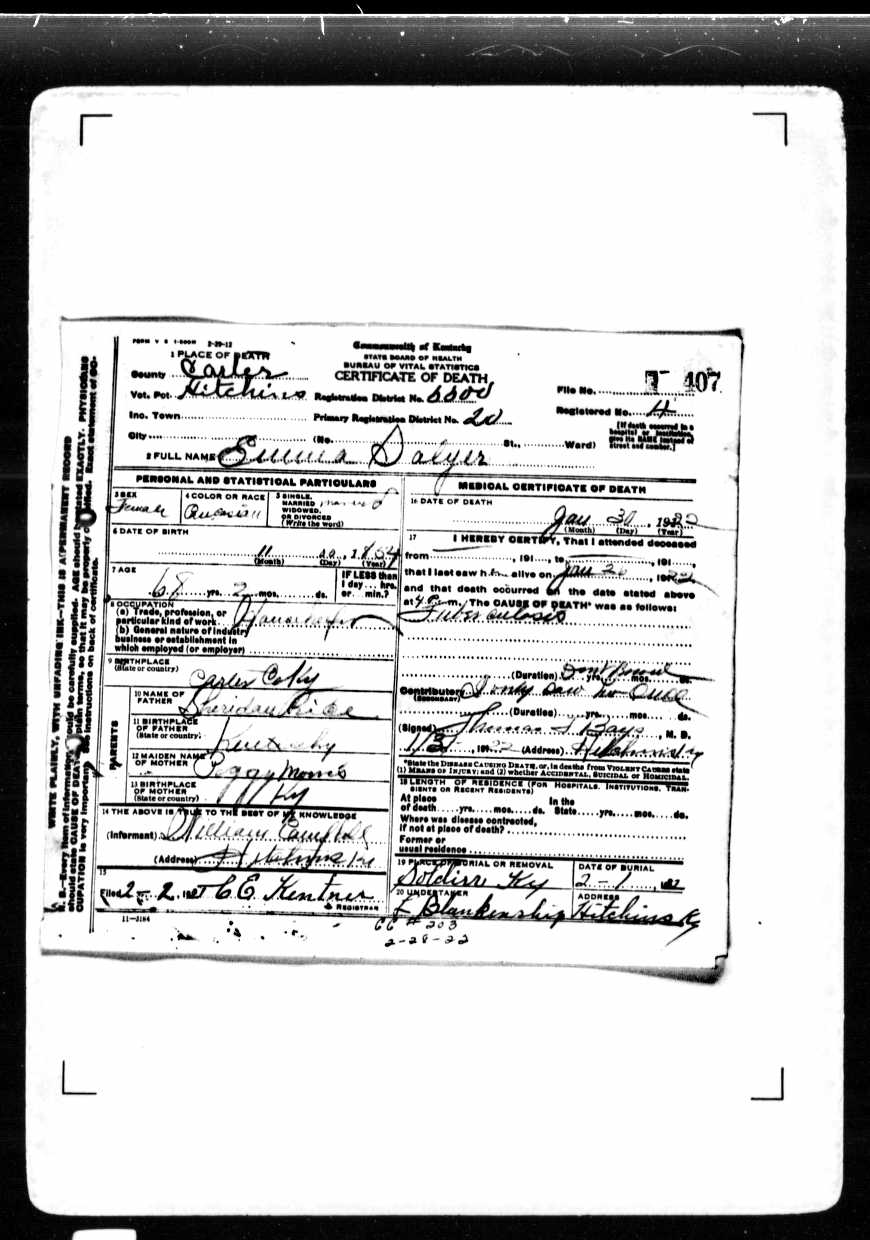 FORM V S 1-500M 2-29-12
Commonwealth of Kentucky
STATE BOARD OF HEALTH
BUREAU OF VITAL STATISTICS
CERTIFICATE OF DEATH
1 PLACE OF DEATH
County Carter
Vot. Pct. Hitchins Registration District No.
File No. 407
Inc. Town Primary Registration District No. 20
Registered No. 4
City (No. St., Ward)
[If death occurred in a hospital or institution, give its NAME instead of street and number.]
2 FULL NAME Emma Salyer
PERSONAL AND STATISTICAL PARTICULARS
3 SEX Female
4 COLOR OR RACE
5 SINGLE, MARRIED WIDOWED, OR DIVORCED (Write the word) married
6 DATE OF BIRTH
11 1854
(Month) (Day) (Year)
7 AGE
yrs. 2 mos. ds.
IF LESS than 1 day... hrs. or... min.?
8 OCCUPATION
(a) Trade, profession, or particular kind of work
(b) General nature of industry business or establishment in which employed (or employer)
9 BIRTHPLACE
(State or country) Carter Co Ky
PARENTS
10 NAME OF FATHER Sheridan
11 BIRTHPLACE OF FATHER (State or country) Kentucky
12 MAIDEN NAME OF MOTHER Peggy Morris
13 BIRTHPLACE OF MOTHER (State or country) Ky
14 THE ABOVE IS TRUE TO THE BEST OF MY KNOWLEDGE
(Informant) William Campbell
(Address) Hitchins Ky
15
Filed 2-2, 19 C E Kentner
REGISTRAR
11-3184
MEDICAL CERTIFICATE OF DEATH
16 DATE OF DEATH
Jan 30, 1922
(Month) (Day) (Year)
17 I HEREBY CERTIFY, That I attended deceased
from , 191 , to , 191 ,
that I last saw h alive on Jan , 1922
and that death occurred on the date stated above
at 4 P m. The CAUSE OF DEATH* was as follows:
Tuberculosis
(Duration) yrs. mos. ds.
Contributory I only saw her Once
(SECONDARY)
(Duration) yrs. mos. ds.
(Signed) Thomas J Bays, M. D.
, 1922 (Address) Hitchins Ky
*State the DISEASE CAUSING DEATH, or, in deaths from VIOLENT CAUSES state (1) MEANS OF INJURY; and (2) whether ACCIDENTAL, SUICIDAL or HOMICIDAL.
18 LENGTH OF RESIDENCE (FOR HOSPITALS, INSTITUTIONS, TRANSIENTS OR RECENT RESIDENTS)
At place of death yrs. mos. ds. In the State yrs. mos. ds.
Where was disease contracted, if not at place of death?
Former or usual residence
19 PLACE OF BURIAL OR REMOVAL Soldier Ky
DATE OF BURIAL 2-1, 192
20 UNDERTAKER Blankenship
ADDRESS Hitchins Ky
# 203
2-28-22
WRITE PLAINLY, WITH UNFADING INK—THIS IS A PERMANENT RECORD
N. B.—Every item of information should be carefully supplied. AGE should be stated EXACTLY. PHYSICIANS
should state CAUSE OF DEATH in plain terms, so that it may be properly classified. Exact statement of OC-
CUPATION is very important. See instructions on back of certificate.